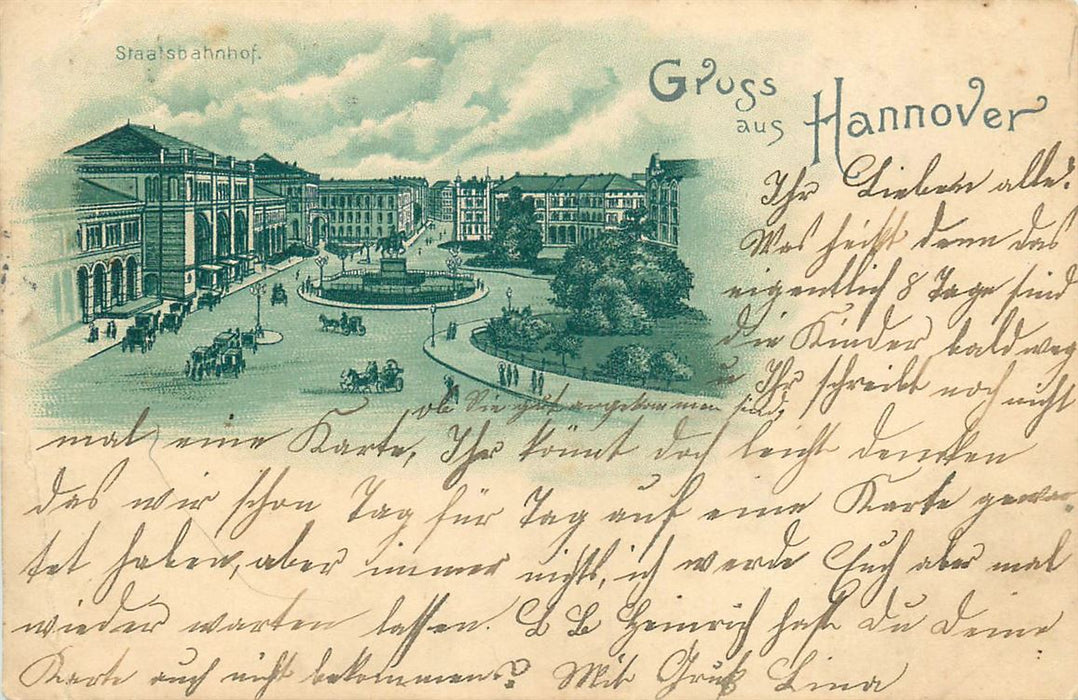 Staatsbahnhof.
Gruss
aus Hannover
Ihr Lieben alle!
Was heißt denn das
eigentlich 8 Tage sind
die Kinder bald weg
u Ihr schreibt noch nicht
ob Sie gut angekommen sind,
mal eine Karte, Ihr könnt doch leicht denken
das wir schon Tag für Tag auf eine Karte gewar
tet haben, aber immer nichts, ich werde Euch aber mal
wieder warten lassen. L B Heinrich hast Du Deine
Karte auch nicht bekommen? Mit Gruß Lina